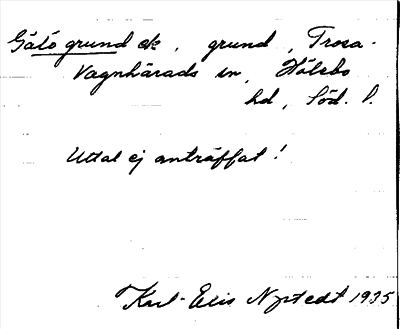 Gålö grund ek, grund, Trosa-
Vagnhärads sn, Hölebo
hd, Söd. l.
Uttal ej anträffat!
Karl-Elis Nystedt 1935